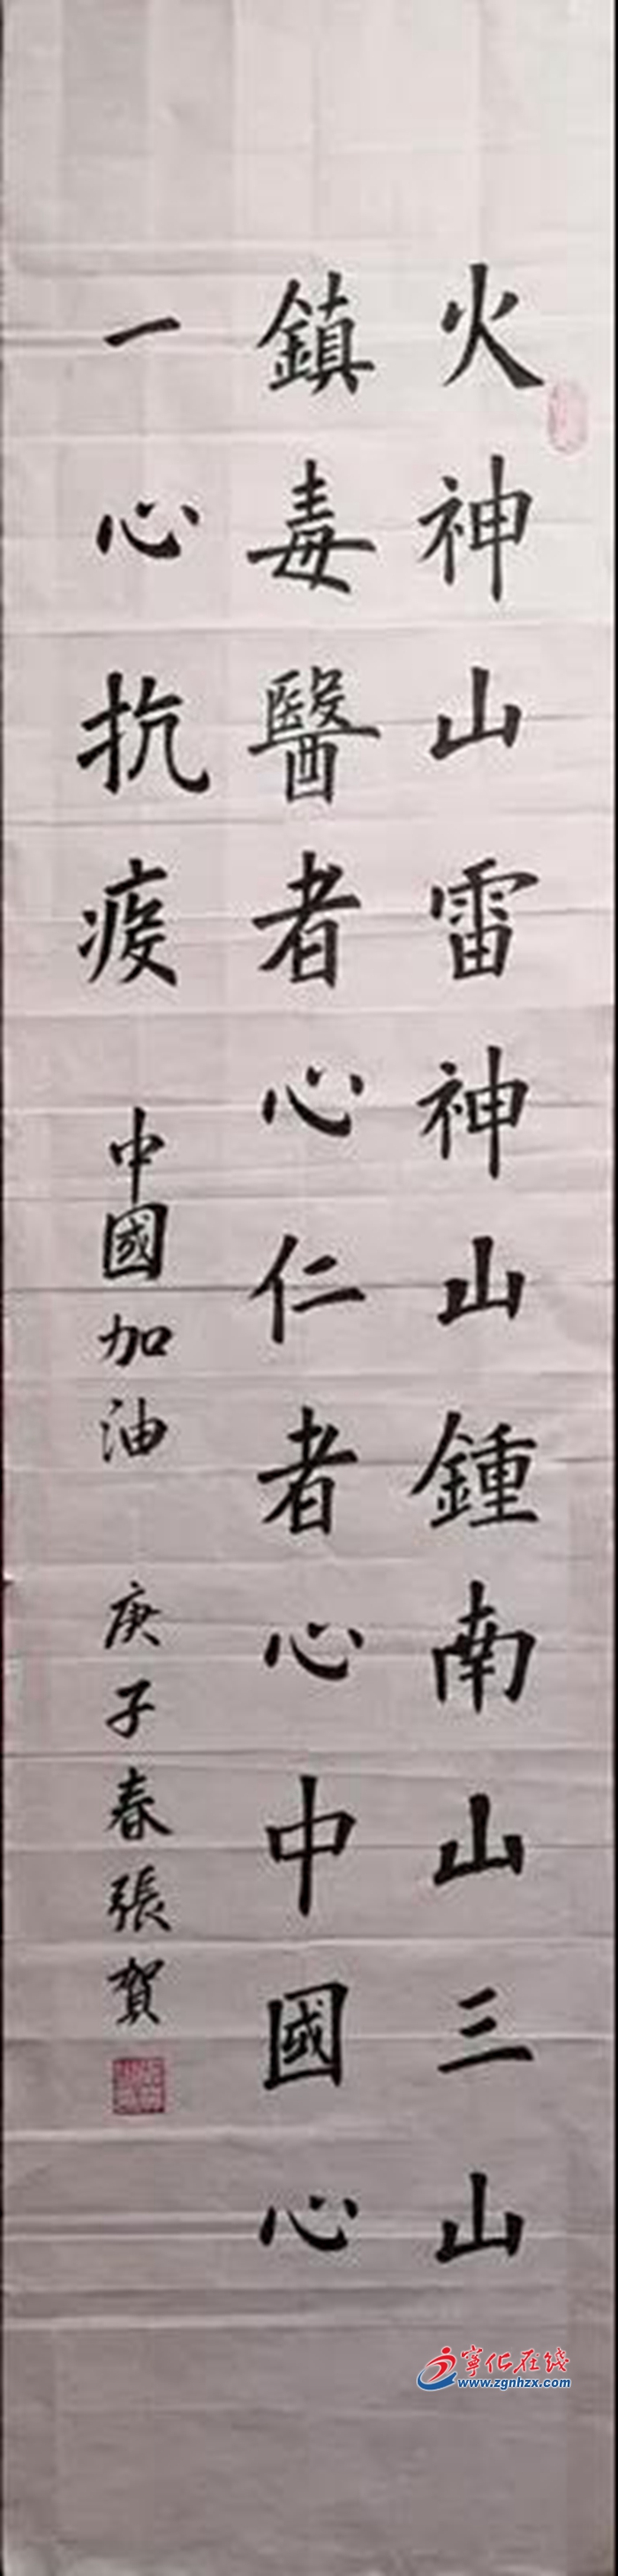 火神山雷神山鍾南山三山
鎮毒醫者心仁者心中國心
一心抗疫 中國加油 庚子春張賀
寧化在线
www.zgnhzx.com